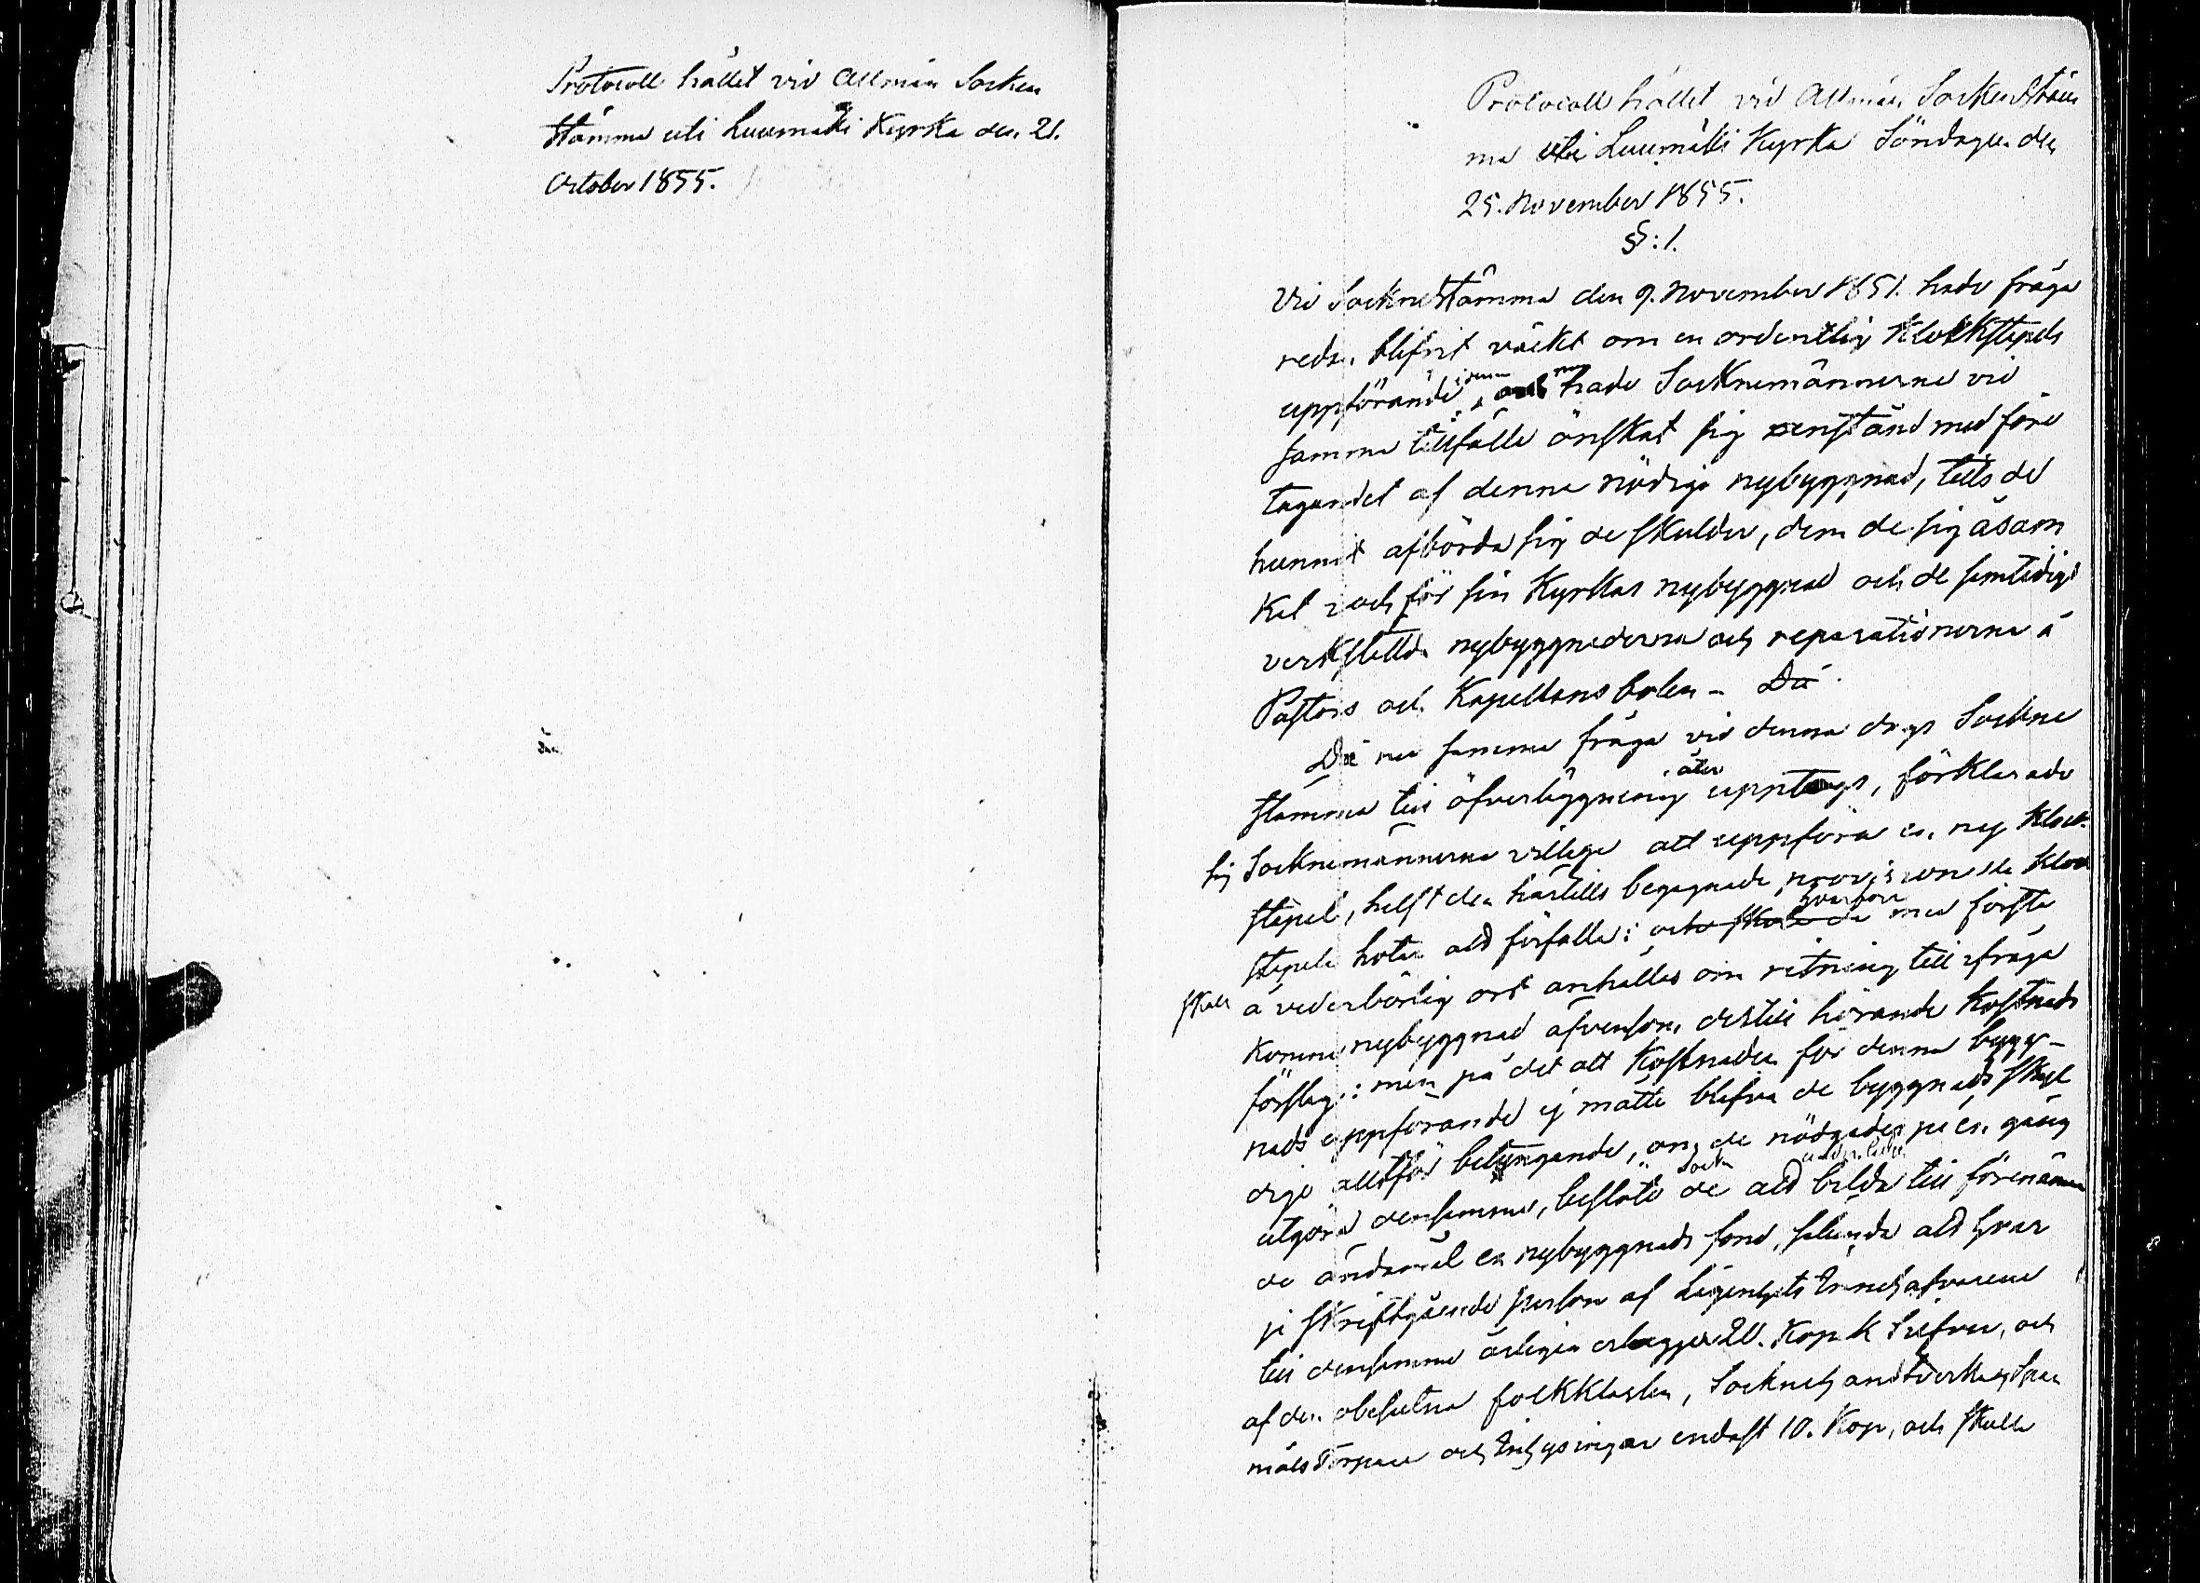 Protocoll hållet vid Allmän Socken
stämma uti Luumäki Kyrka den 21.
October 1855.
Protocoll hållet vid Allmän Sockenstäm
ma uti Luumäki Kyrka Söndagen den
25. November 1855.
§:1.
Vid Socknestämma den 9. November 1851. hade fråga
redan blifvit väckt om en ordentlig Klockstapels
uppförande, och hade Socknemännerne vid
samma tillfälle önskat sig anstånd med före
tagandet af denna nödiga nybyggnad, tills de
hunnit afbörda sig de skulder, dem de sig åsam
kat och för sin Kyrkas nybyggnad och de samtidigt
verkstellda nybyggnaderna och reparationerna å
Pastors och Kapellansbolen - Då
Då nu samma fråga vid denna dags Sockne
stämma till öfverläggning åter upptogs, förklarade
sig Socknemännerna villige att uppföra en ny Klock-
stapel, helst den härtills begagnade provisionella Klock
stapeln hotar att förfalla: och skall de hvarföre med första
skall å vederbörlig ort anhållas om ritning till ifråga
komne nybyggnad äfvensom dertill hörande Kostnads
förslag: men på det att Kostnaden för denna bygg-
nads uppförande ej måtte blifva de byggnads skyl
dige alltför betungande, om de nödgades på en gång
utgöra densamma, beslöto de att bilda till förenämn
de ändamål en nybyggnads fond, sålunda att hvar
je skriftgående person af Lägenhets Innehafvarene
till densamma årligen erlägger 20. Kop. Silfver, och
af den obesutna folkklassen, Socknehandtverkare,
måls Torpare och Inhysingar endast 10. Kop, och skulle